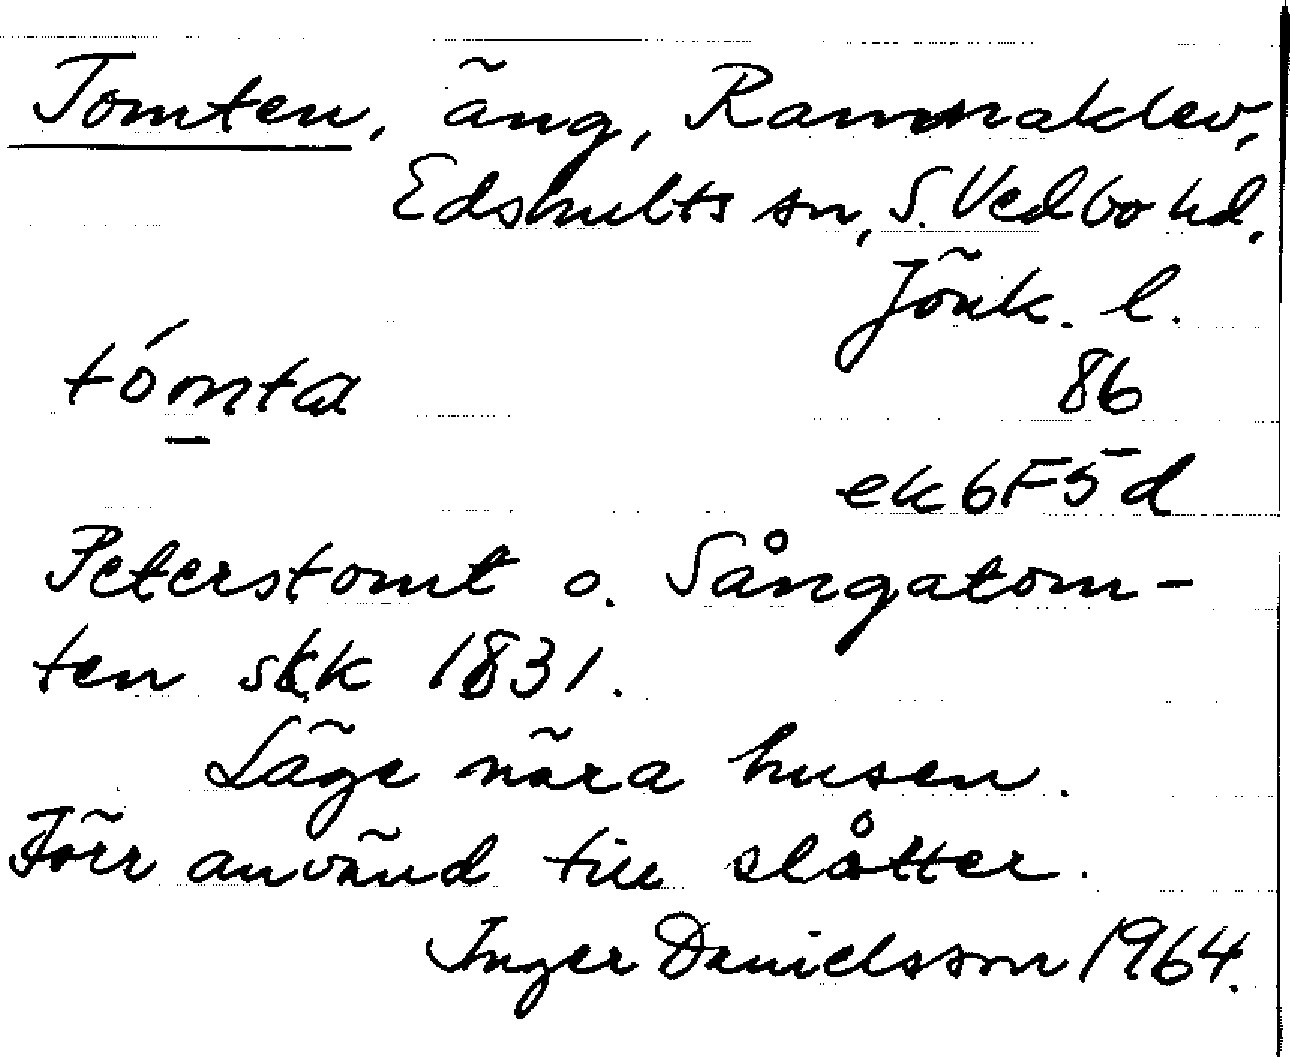 Tomten, äng, Ramnaklev,
Edshults sn, S. Vedbo hd,
Jönk. l.
tómta
86
ek 6F5d
Peterstomt o. Sångatom-
ten skk 1831.
Läge nära husen.
Förr använd till slåtter.
Inger Danielsson 1964.